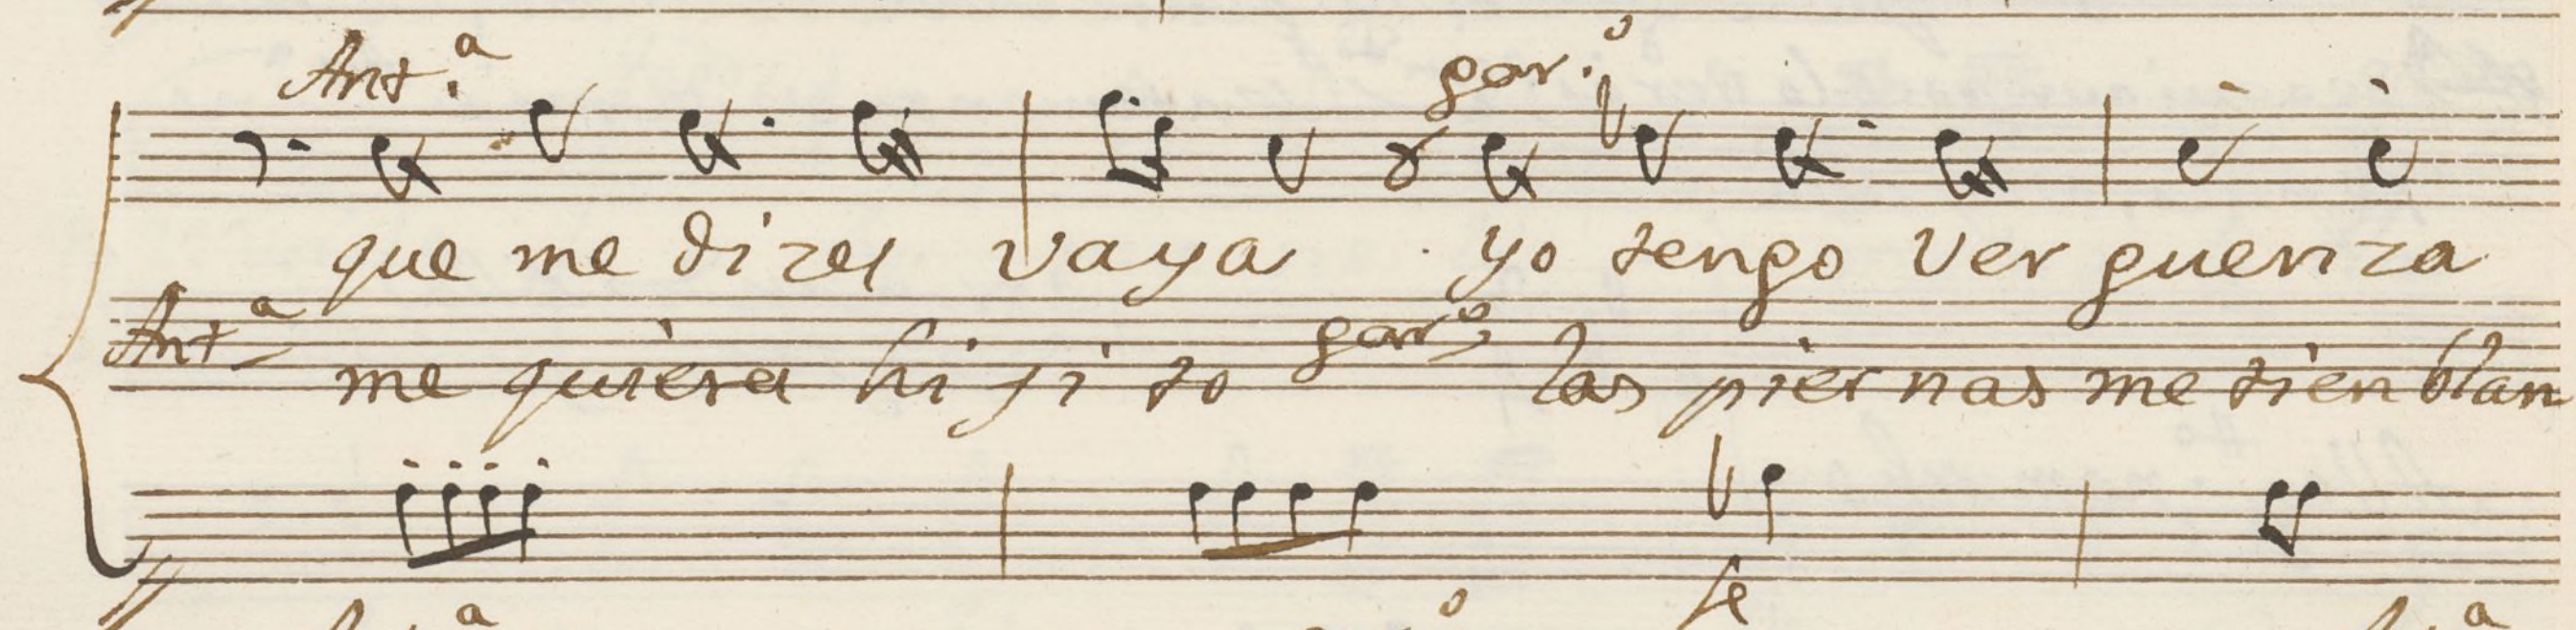 Ant.ª gar.º
que me dizes vaya yo tengo verguenza
Antª me quiera hijito garº las piernas me tienblan
fe